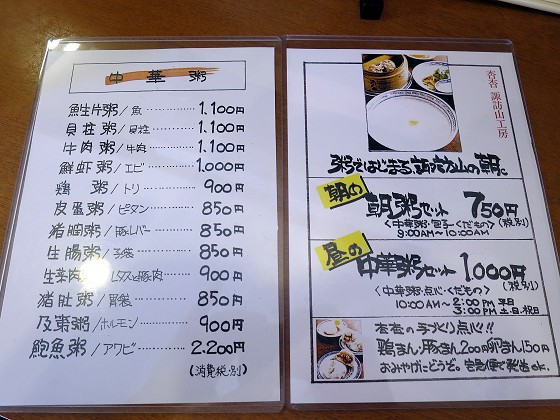 中華粥
鮮生片粥/魚 1.100円
貝柱粥/貝柱 1.100円
牛肉粥/牛肉 1.100円
鮮蝦粥/エビ 1.000円
鶏 粥/トリ 900円
皮蛋粥/ピタン 850円
猪膶粥/豚レバー 850円
生腸粥/子袋 850円
生菜肉粥/レタスと豚肉 900円
猪肚粥/胃袋 850円
及第粥/ホルモン 900円
鮑魚粥/アワビ 2.200円
(消費税別)
杏杏 諏訪山工房
粥ではじまる、諏訪山の朝。
朝の
朝粥セット 750円
(税別)
<中華粥・包子・くだもの>
9:00AM〜10:00AM
昼の
中華粥セット 1.000円
(税別)
<中華粥・点心・くだもの>
10:00AM〜2:00PM 平日
3:00PM 土・日・祝日
杏杏の手づくり点心!!
鶏まん・豚まん200円 卵まん150円
おみやげにどうぞ。宅急便で発送ok.